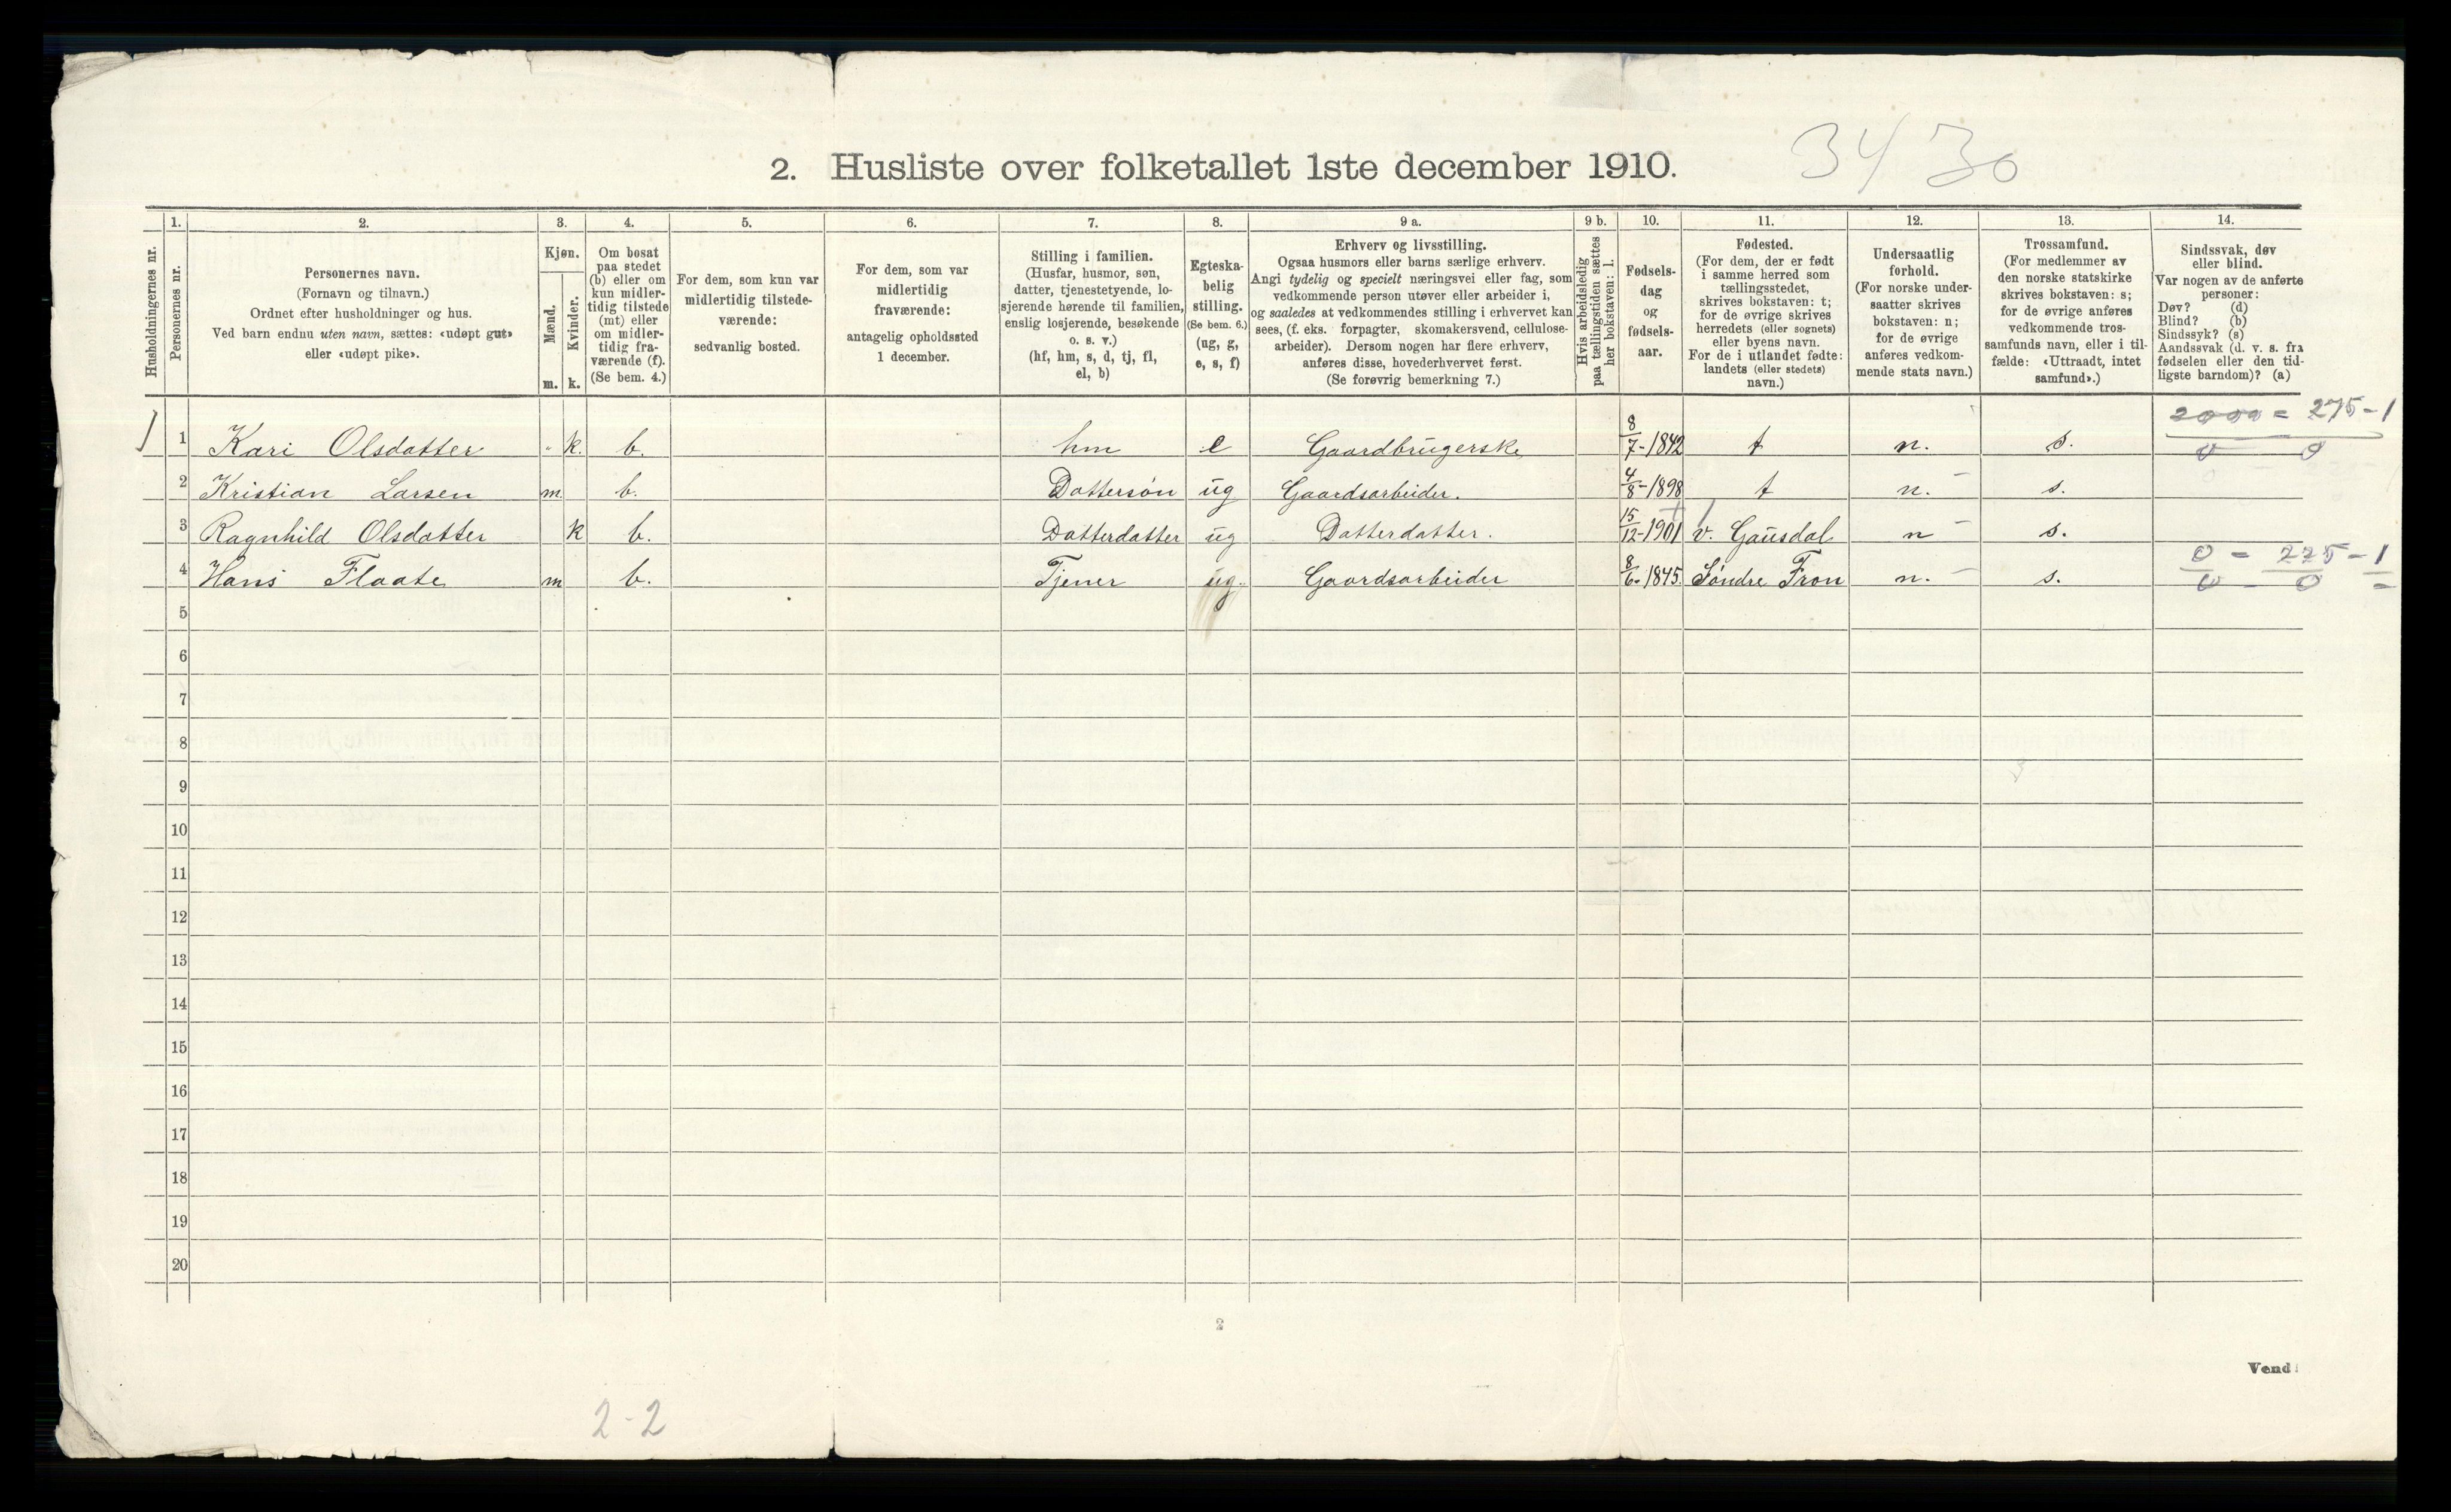 3430
2. Husliste over folketallet 1ste december 1910.
Husholdningernes nr.
1.
Personernes nr.
2.
Personernes navn.
(Fornavn og tilnavn.)
Ordnet efter husholdninger og hus.
Ved barn endnu uten navn, sættes: «udøpt gut»
eller «udøpt pike».
3.
Kjøn.
Mænd.
Kvinder.
m. k.
4.
Om bosat
paa stedet
(b) eller om
kun midler-
tidig tilstede
(mt) eller
om midler-
tidig fra-
værende (f).
(Se bem. 4.)
5.
For dem, som kun var
midlertidig tilstede-
værende:
sedvanlig bosted.
6.
For dem, som var
midlertidig
fraværende:
antagelig opholdssted
1 december.
7.
Stilling i familien.
(Husfar, husmor, søn,
datter, tjenestetyende, lo-
sjerende hørende til familien,
enslig losjerende, besøkende
o. s. v.)
(hf, hm, s, d, tj, fl,
el, b)
8.
Egteska-
belig
stilling.
(Se bem. 6.)
(ug, g,
e, s, f)
9 a.
Erhverv og livsstilling.
Ogsaa husmors eller barns særlige erhverv.
Angi tydelig og specielt næringsvei eller fag, som
vedkommende person utøver eller arbeider i,
og saaledes at vedkommendes stilling i erhvervet kan
sees, (f. eks. forpagter, skomakersvend, cellulose-
arbeider). Dersom nogen har flere erhverv,
anføres disse, hovederhvervet først.
(Se forøvrig bemerkning 7.)
9 b.
Hvis arbeidsledig
paa tællingstiden sættes
her bokstaven: l.
10.
Fødsels-
dag
og
fødsels-
aar.
11.
Fødested.
(For dem, der er født
i samme herred som
tællingsstedet,
skrives bokstaven: t;
for de øvrige skrives
herredets (eller sognets)
eller byens navn.
For de i utlandet fødte:
landets (eller stedets)
navn.)
12.
Undersaatlig
forhold.
(For norske under-
saatter skrives
bokstaven: n;
for de øvrige
anføres vedkom-
mende stats navn.)
13.
Trossamfund.
(For medlemmer av
den norske statskirke
skrives bokstaven: s;
for de øvrige anføres
vedkommende tros-
samfunds navn, eller i til-
fælde: «Uttraadt, intet
samfund».)
14.
Sindssvak, døv
eller blind.
Var nogen av de anførte
personer:
Døv? (d)
Blind? (b)
Sindssyk? (s)
Aandssvak (d. v. s. fra
fødselen eller den tid-
ligste barndom)? (a)
= 275-1
0 0
1 Kari Olsdatter k. b. hm e Gaardbrugerske 8/7-1842 t n. s.
2 Kristian Larsen m. b. Dattersøn ug Gaardsarbeider. 4/8-1898 t n. s.
3 Ragnhild Olsdatter k b. Datterdatter ug Datterdatter. 15/12-1901 v. Gausdal n s.
0 = 225-1
0 0
4 Hans Flaate m b. Tjener ug. Gaardsarbeider 8/6-1845. Søndre Fron n. s.
5
6
7
8
9
10
11
12
13
14
15
16
17
18
19
20
2
Vend!
2-2